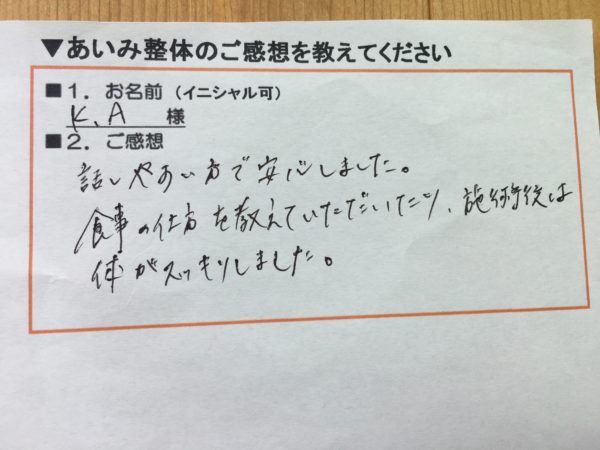 ▼あいみ整体のご感想を教えてください
■1. お名前（イニシャル可）
K.A 様
■2. ご感想
話しやすい方で安心しました。
食事の仕方を教えていただいたり、施術後は
体がスッキリしました。